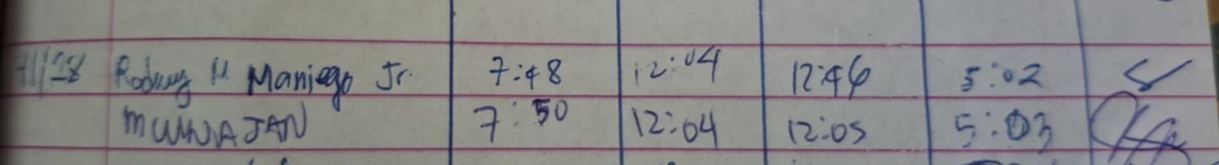 11/28 Rodney U Maniego Jr. 7:48 12:04 12:46 5:02
MUNAJAN 7:50 12:04 12:05 5:03